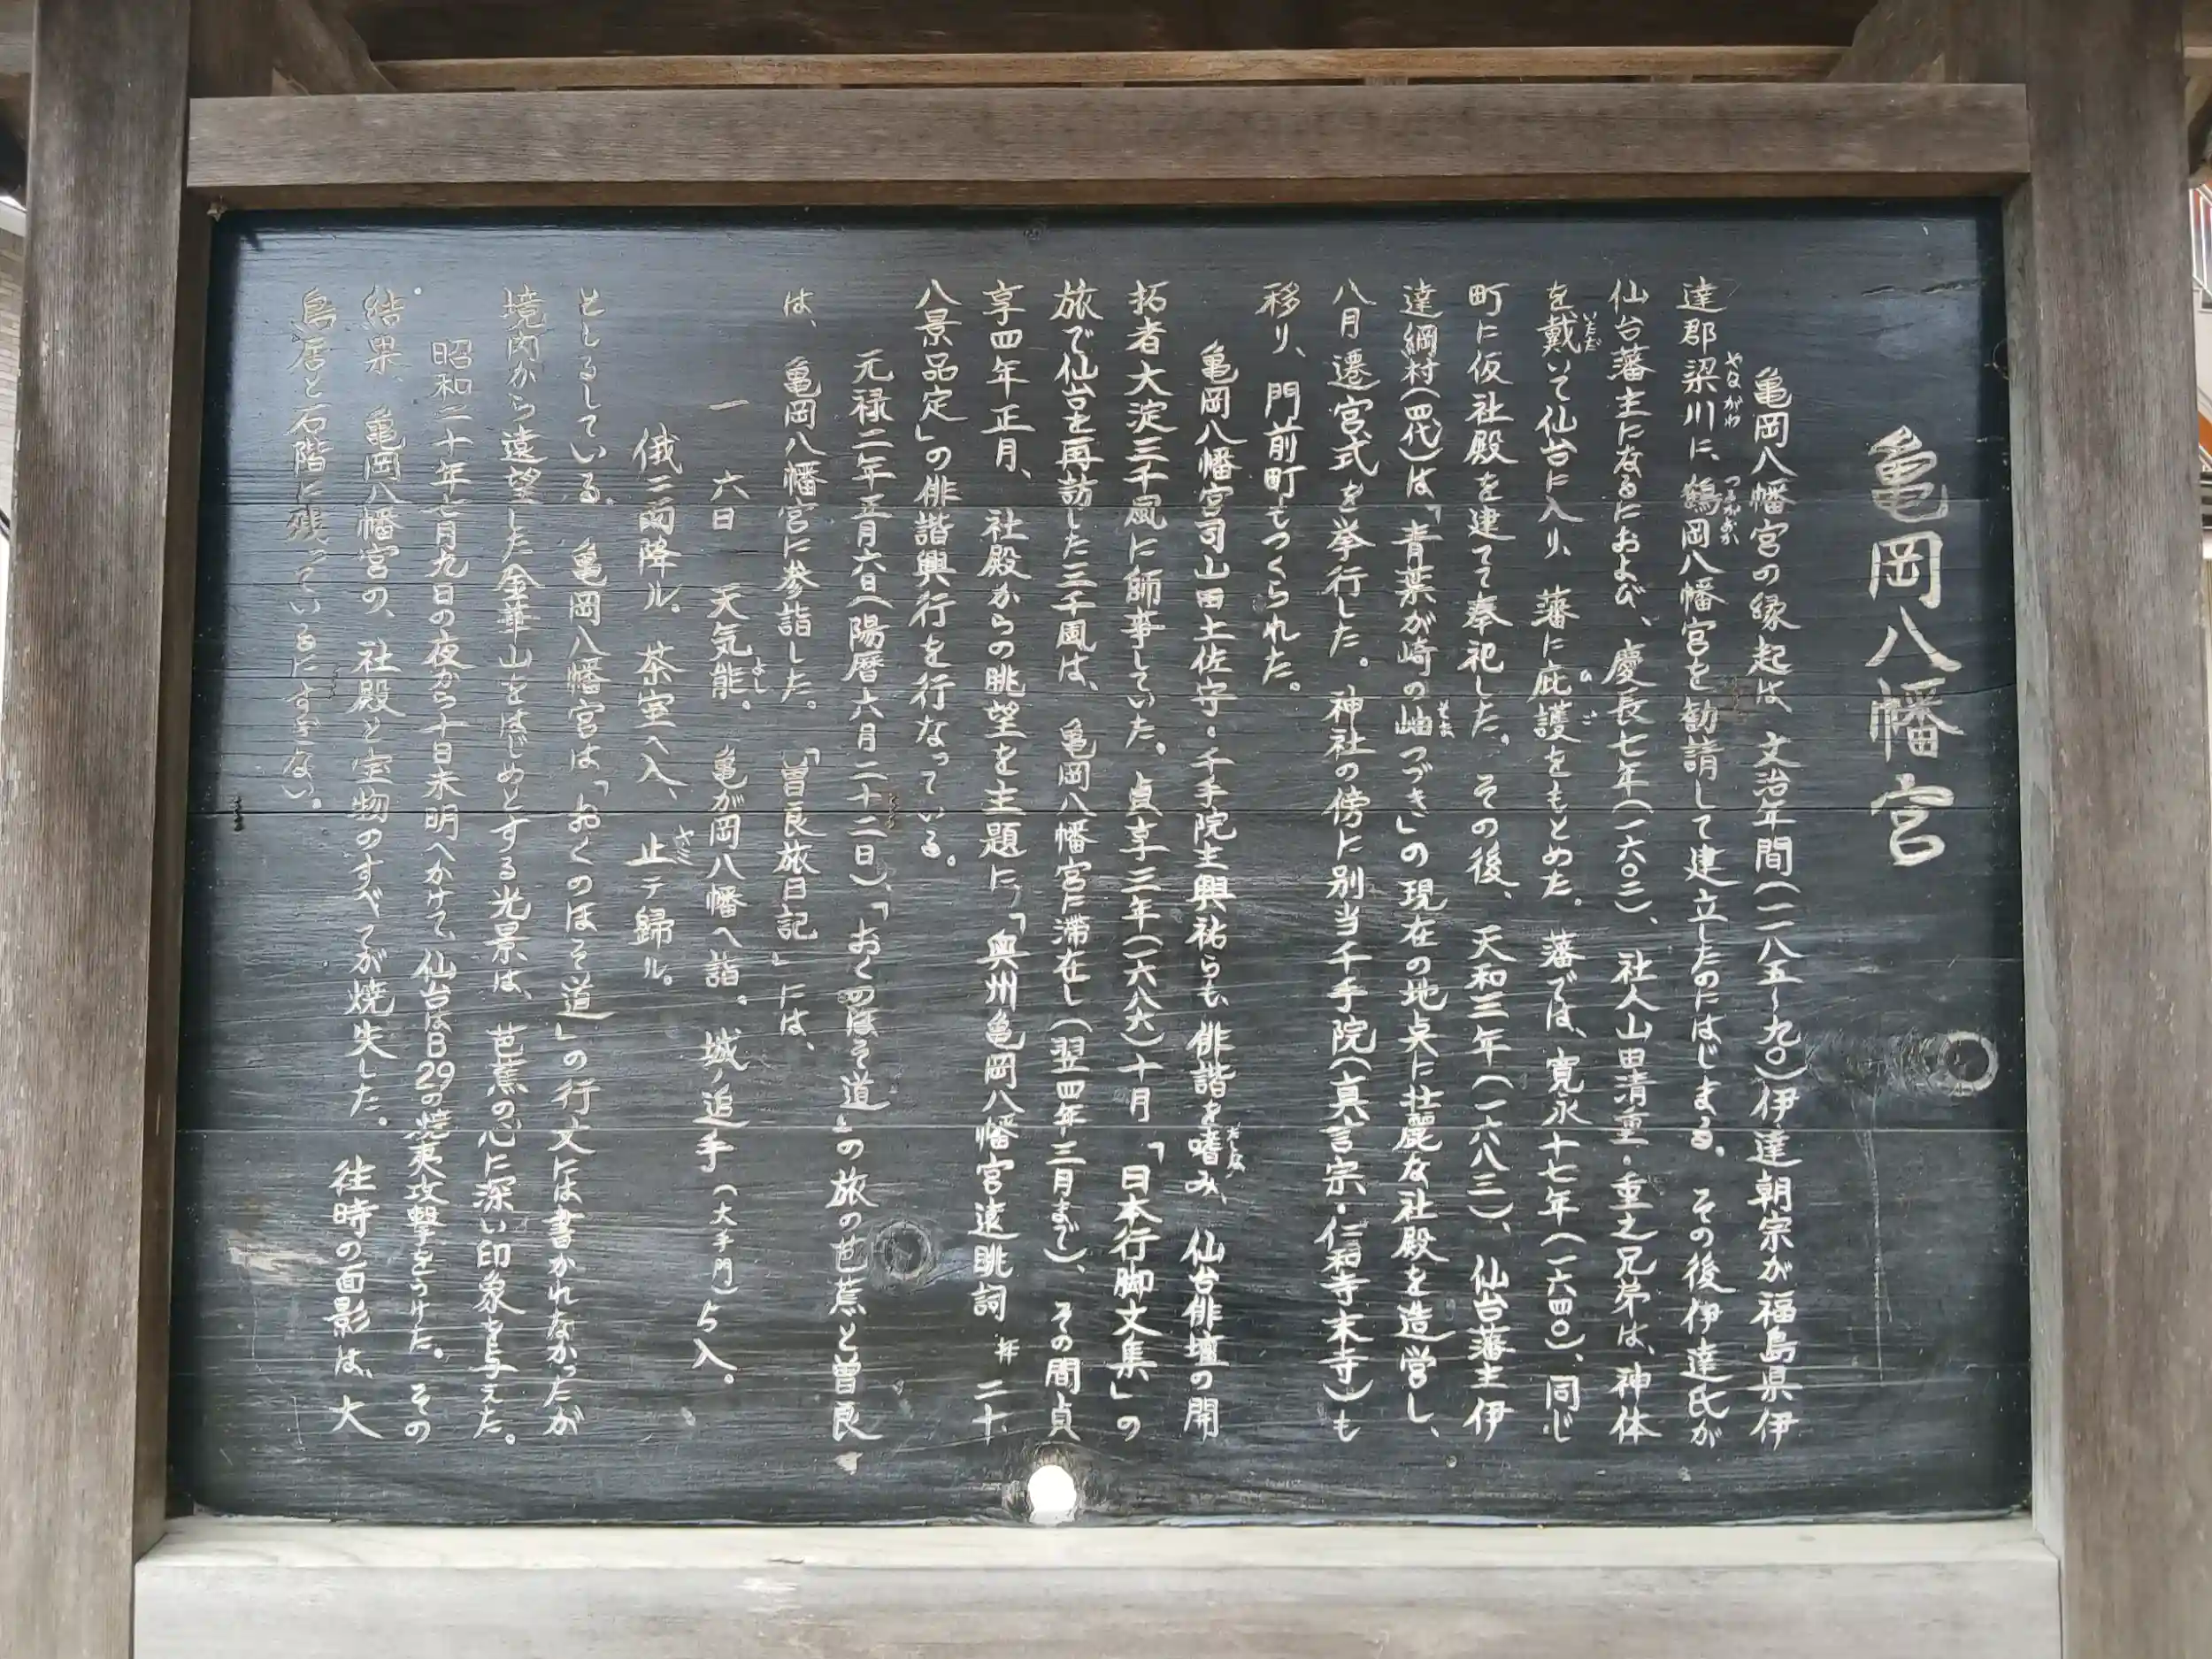 亀岡八幡宮
亀岡八幡宮の縁起は、文治年間(一一八五〜九〇)伊達朝宗が福島県伊
達郡梁川に、鶴岡八幡宮を勧請して建立したのにはじまる。その後伊達氏が
仙台藩主になるにおよび、慶長七年(一六〇二)、社人山田清重・重之兄弟は、神体
を戴いて仙台に入り、藩に庇護をもとめた。藩では、寛永十七年(一六四〇)、同じ
町に仮社殿を建てて奉祀した。その後、天和三年(一六八三)、仙台藩主伊
達綱村(四代)は、「青葉が崎の岫つづき」の現在の地点に壮麗な社殿を造営し、
八月遷宮式を挙行した。神社の傍に別当千手院(真言宗・仁和寺末寺)も
移り、門前町もつくられた。
亀岡八幡宮司山田土佐守・千手院主興祐らも、俳諧を嗜み、仙台俳壇の開
拓者大淀三千風に師事していた。貞享三年(一六八六)十月「日本行脚文集」の
旅で仙台を再訪した三千風は、亀岡八幡宮に滞在し(翌四年三月まで)、その間貞
享四年正月、社殿からの眺望を主題に、「奥州亀岡八幡宮遠眺詞 并 二十
八景品定」の俳諧興行を行なっている。
元禄二年正月六日(陽暦六月二十二日)、「おくのほそ道」の旅の芭蕉と曽良
は、亀岡八幡宮に参詣した。「曽良旅日記」には、
一 六日 天気能。亀が岡八幡へ詣。城ノ追手(大手門)ゟ入。
俄ニ雨降ル。茶室へ入、止テ歸ル。
としるしている。亀岡八幡宮は、「おくのほそ道」の行文には書かれなかったが
境内から遠望した金華山をはじめとする光景は、芭蕉の心に深い印象を与えた。
昭和二十年七月九日の夜から十日未明へかけて、仙台はB29の焼夷攻撃をうけた。その
結果、亀岡八幡宮の、社殿と宝物のすべてが焼失した。往時の面影は、大
鳥居と石階に残っているにすぎない。